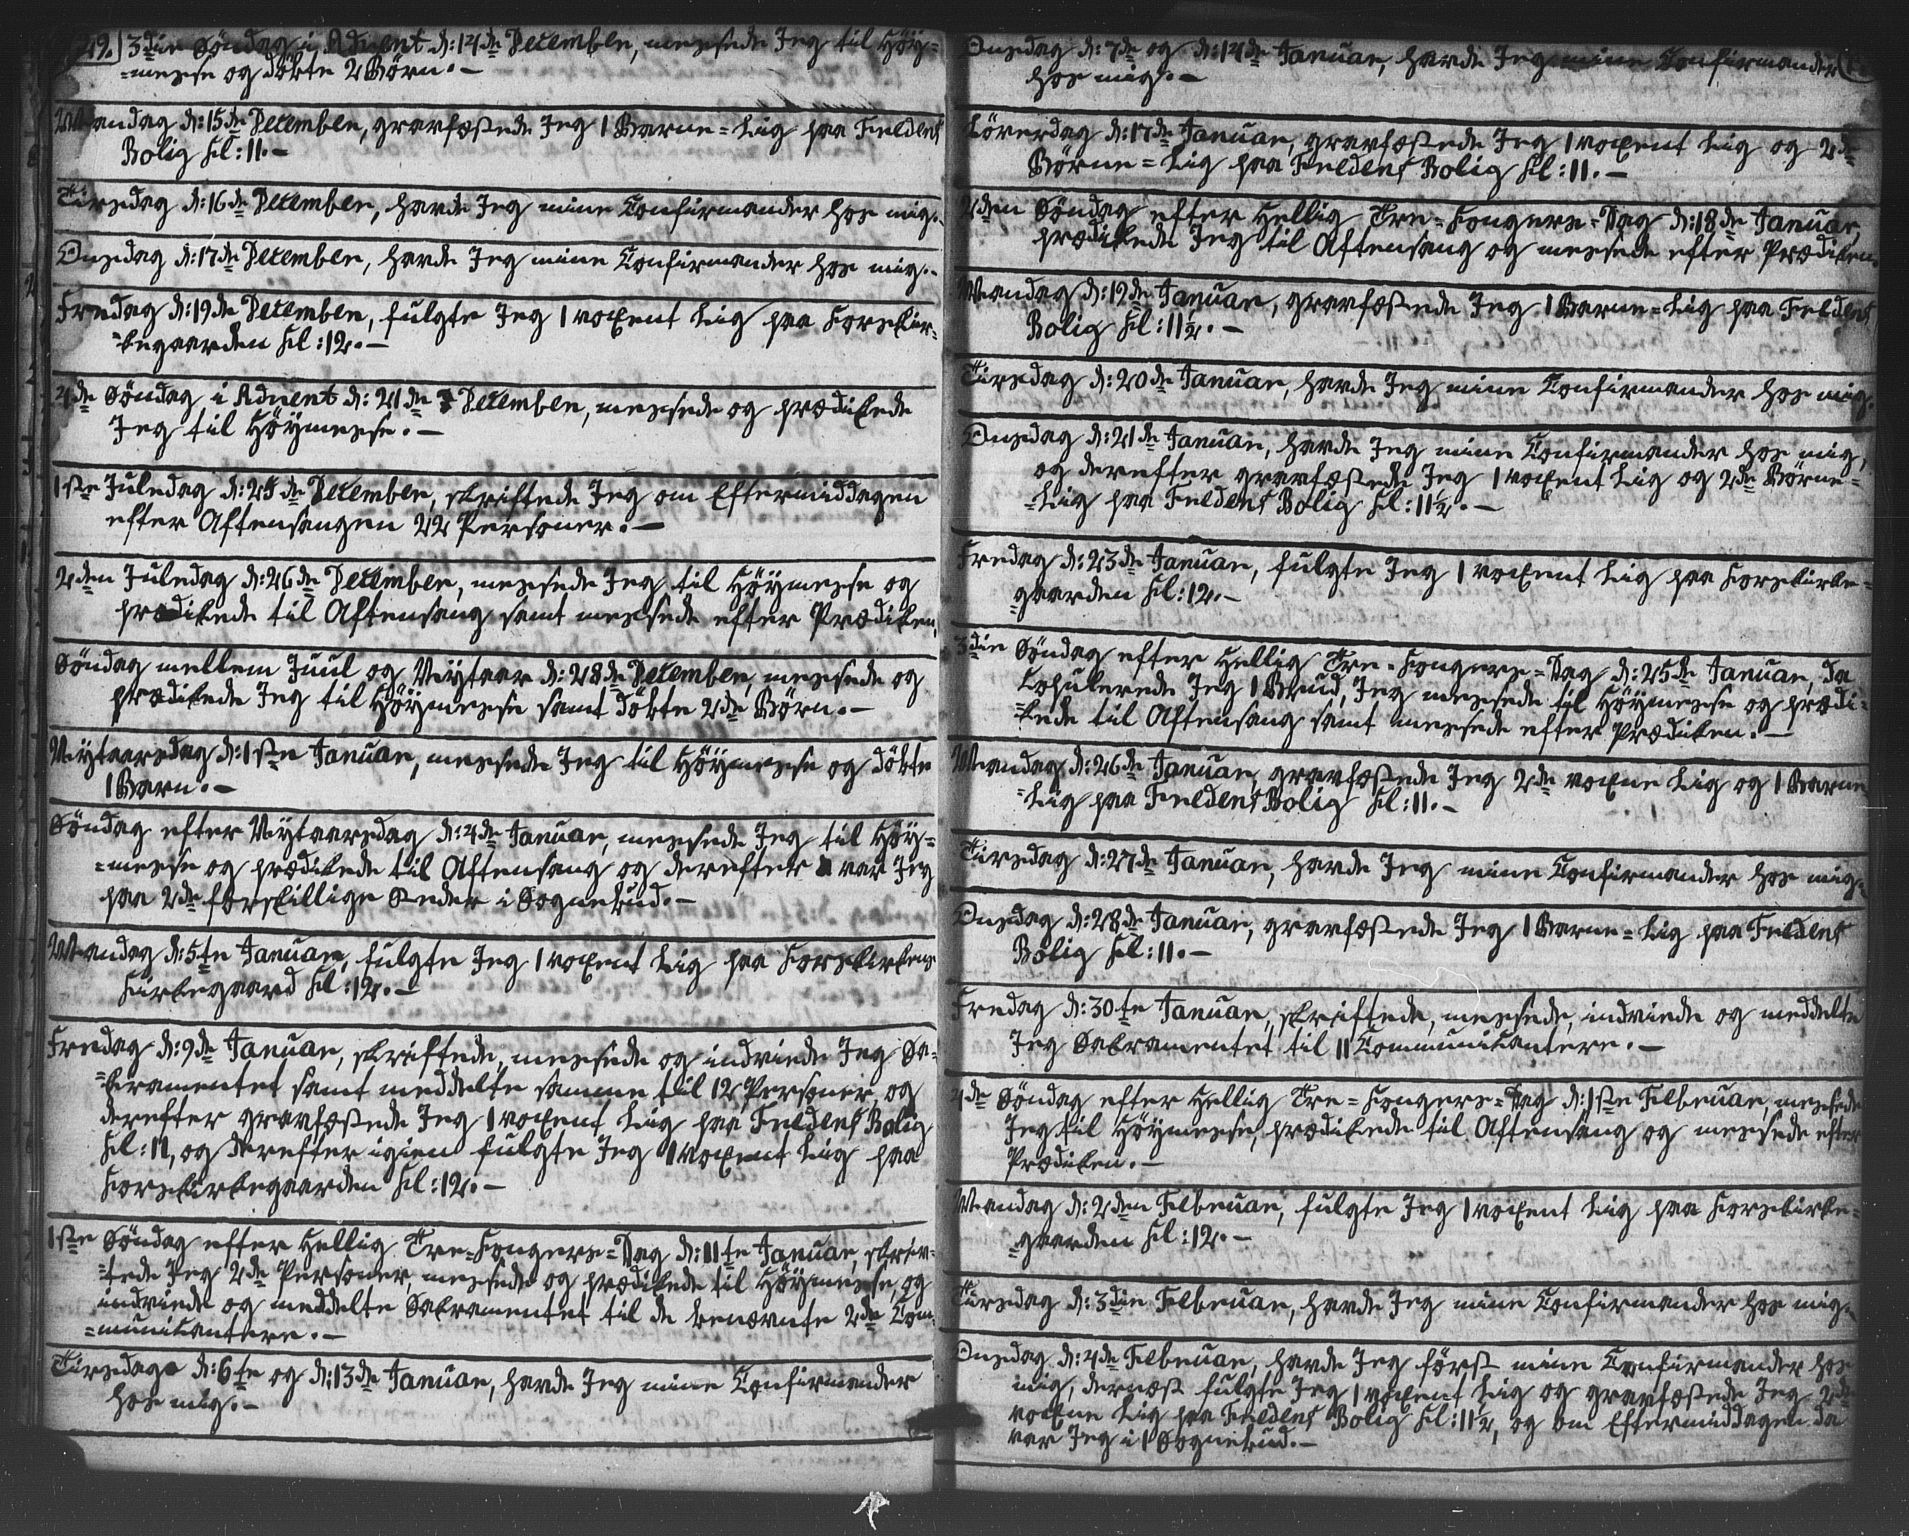 29. 3die Söndag i Advent d: 14de December, messede Jeg til Höy=
=messe og döbte 2 Börn. –
Mandag d: 15de December, gravfæstede Jeg 1 Barne=Liig paa Fieldens
Bolig Kl: 11. –
Tirsdag d: 16de December, havde Jeg mine Confirmander hos mig. –
Onsdag d: 17de December, havde Jeg mine Confirmander hos mig. –
Fredag d: 19de December, fulgte Jeg 1 voxent Liig paa Korskir=
=kegaarden Kl: 12. –
4de Söndag i Advent d: 21de December, messede og prædikede
Jeg til Höymesse. –
1ste Juledag d: 25de December, skriftede Jeg om Eftermiddagen
efter Aftensangen 22 Personer. –
2den Juledag d: 26de December, messede Jeg til Höymesse og
prædikede til Aftensang samt messede efter Prædiken.
Söndag mellem Juul og Nytaar d: 28de December, messede og
prædikede Jeg til Höymesse samt döbte 2de Börn. –
Nytaarsdag d: 1ste Januar, messede Jeg til Höymesse og döbte
1 Barn. –
Söndag efter Nytaarsdag d: 4de Januar, messede Jeg til Höy=
=messe og prædikede til Aftensang og derefter var Jeg
paa 2de forskillige Steder i Sognebud. –
Mandag d: 5te Januar, fulgte Jeg 1 voxent Liig paa Korskirkens
Kirkegaard Kl: 12. –
Fredag d: 9de Januar, skriftede, messede og indviede Jeg Sa=
=kramentet samt meddelte samme til 12 Personer, og
derefter gravfæstede Jeg 1 voxent Liig paa Fieldens Bolig
Kl: 11, og derefter igien fulgte Jeg 1 voxent Liig paa
Korskirkegaarden Kl: 12. –
1ste Söndag efter Hellig Tre=Kongers=Dag d: 11te Januar, skriv=
=tede Jeg 2de Personer, messede og prædikede til Höymesse, og
indviede og meddelte Sakramentet til de benævnte 2de Com=
=municantere. –
Tirsdag d: 6te og d: 13de Januar, havde Jeg mine Confirmander
hos mig. –
Onsdag d: 7de og d: 14de Januar, havde Jeg mine Confirmander
hos mig. –
Löverdag d: 17de Januar, gravfæstede Jeg 1 voxent Liig og 2de
Börne=Liig paa Fieldens Bolig Kl: 11. –
2den Söndag efter Hellig Tre=Kongers=Dag d: 18de Januar,
prædikede Jeg til Aftensang og messede efter Prædiken.
Mandag d: 19de Januar, gravfæstede Jeg 1 Barne=Liig paa Fieldens
Bolig Kl: 11½. –
Tirsdag d: 20de Januar, havde Jeg mine Confirmander hos mig.
Onsdag d: 21de Januar, havde Jeg mine Confirmander hos mig,
og derefter gravfæstede Jeg 1 voxent Liig og 2de Börne=
=Liig paa Fieldens Bolig Kl: 11½. –
Fredag d: 23de Januar, fulgte Jeg 1 voxent Liig paa Korskirke=
=gaarden Kl: 12. –
3die Söndag efter Hellig Tre=Kongers=Dag d: 25de Januar, da
Copulerede Jeg 1 Brud, Jeg messede til Höymesse og prædi=
=kede til Aftensang samt messede efter Prædiken. –
Mandag d: 26de Januar, gravfæstede Jeg 2de voxne Liig og 1 Barne
=Liig paa Fieldens Bolig Kl: 11. –
Tirsdag d: 27de Januar, havde Jeg mine Confirmander hos mig. –
Onsdag d: 28de Januar, gravfæstede Jeg 1 Barne=Liig paa Fieldens
Bolig Kl: 11. –
Fredag d: 30te Januar, skriftede, messede, indviede og meddelte
Jeg Sakramentet til 11 Communicantere. –
4de Söndag efter Hellig Tre=Kongers=Dag d: 1ste Februar, messede
Jeg til Höymesse, prædikede til Aftensang og messede efter
Prædiken. –
Mandag d: 2den Februar, fulgte Jeg 1 voxent Liig paa Korskirke=
=gaarden Kl: 12. –
Tirsdag d: 3die Februar, havde Jeg mine Confirmander hos mig. –
Onsdag d: 4de Februar, havde Jeg först mine Confirmander hos
mig, dernæst fulgte Jeg 1 voxent Liig og gravfæstede Jeg 2de
voxne Liig paa Fieldens Bolig Kl: 11½, og om Eftermiddagen da
var Jeg i 1 Sognebud. –